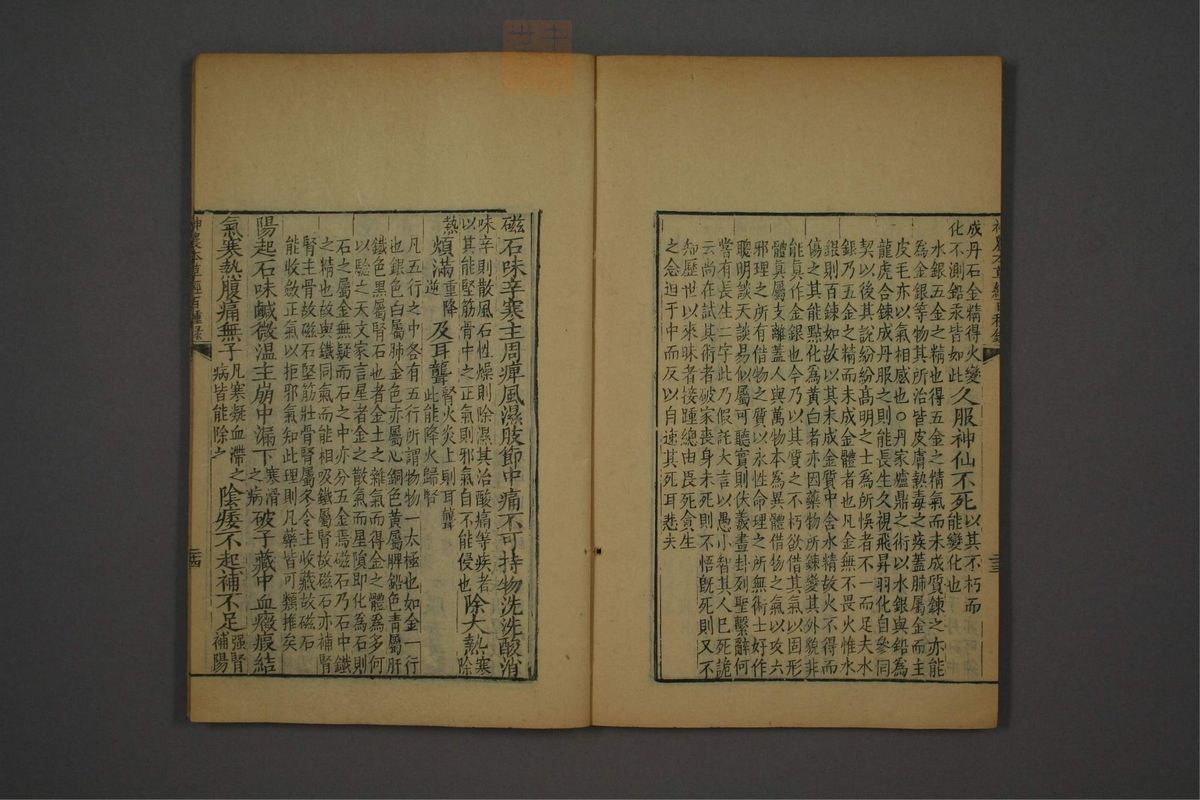 神農本草經百種錄
二十三
成丹石金精得火變
化不測鉛汞皆如此久服神仙不死以其不朽而
能變化也
水銀五金之精也得五金之精氣而未成質鍊之亦能
為金銀等物其所治皆皮膚熱毒之疾蓋肺屬金而主
皮毛亦以氣相感也○丹家爐鼎之術以水銀與鉛為
龍虎合鍊成丹服之則能長生久視飛昇羽化自參同
契以後其說紛紛高明之士為所悞者不一而足夫水
銀乃五金之精而未成金體者也凡金無不畏火惟水
銀則百鍊如故以其未成金質中含水精故火不得而
傷之其能點化為黃白者亦因藥物所鍊變其外貌非
能眞作金銀也今乃以其質之不朽欲借其氣以固形
體眞屬支離蓋人與萬物本為異體借物之氣以攻六
邪理之所有借物之質以永性命理之所無術士好作
聰明談天談易似屬可聽實則伏羲畫卦列聖繫辭何
嘗有長生二字此乃假託大言以愚小智其人已死詭
云尚在試其術者破家喪身未死則不悟旣死則又不
知歷世以來昧者接踵總由畏死貪生
之念迫于中而反以自速其死耳悲夫
磁石味辛寒主周痺風濕肢節中痛不可持物洗洗酸消
味辛則散風石性燥則除濕其治酸痛等疾者
以其能堅筋骨中之正氣則邪氣自不能侵也除大熱寒
除
熱煩滿重降
逆及耳聾腎火炎上則耳聾
此能降火歸腎
凡五行之中各有五行所謂物物一太極也如金一行
也銀色白屬肺金色赤屬心銅色黃屬脾鉛色青屬肝
鐵色黑屬腎石也者金土之雜氣而得金之體為多何
以驗之天文家言星者金之散氣而星隕即化為石則
石之屬金無疑而石之中亦分五金焉磁石乃石中鐵
之精也故與鐵同氣而能相吸鐵屬腎故磁石亦補腎
腎主骨故磁石堅筋壯骨腎屬冬令主收藏故磁石
能收斂正氣以拒邪氣知此理則凡藥皆可類推矣
陽起石味鹹微溫主崩中漏下寒滑
之病破子藏中血癥瘕結
氣寒熱腹痛無子凡寒凝血滯之
病皆能除之陰痿不起補不足強腎
補陽
神農本草經百種錄
二十四